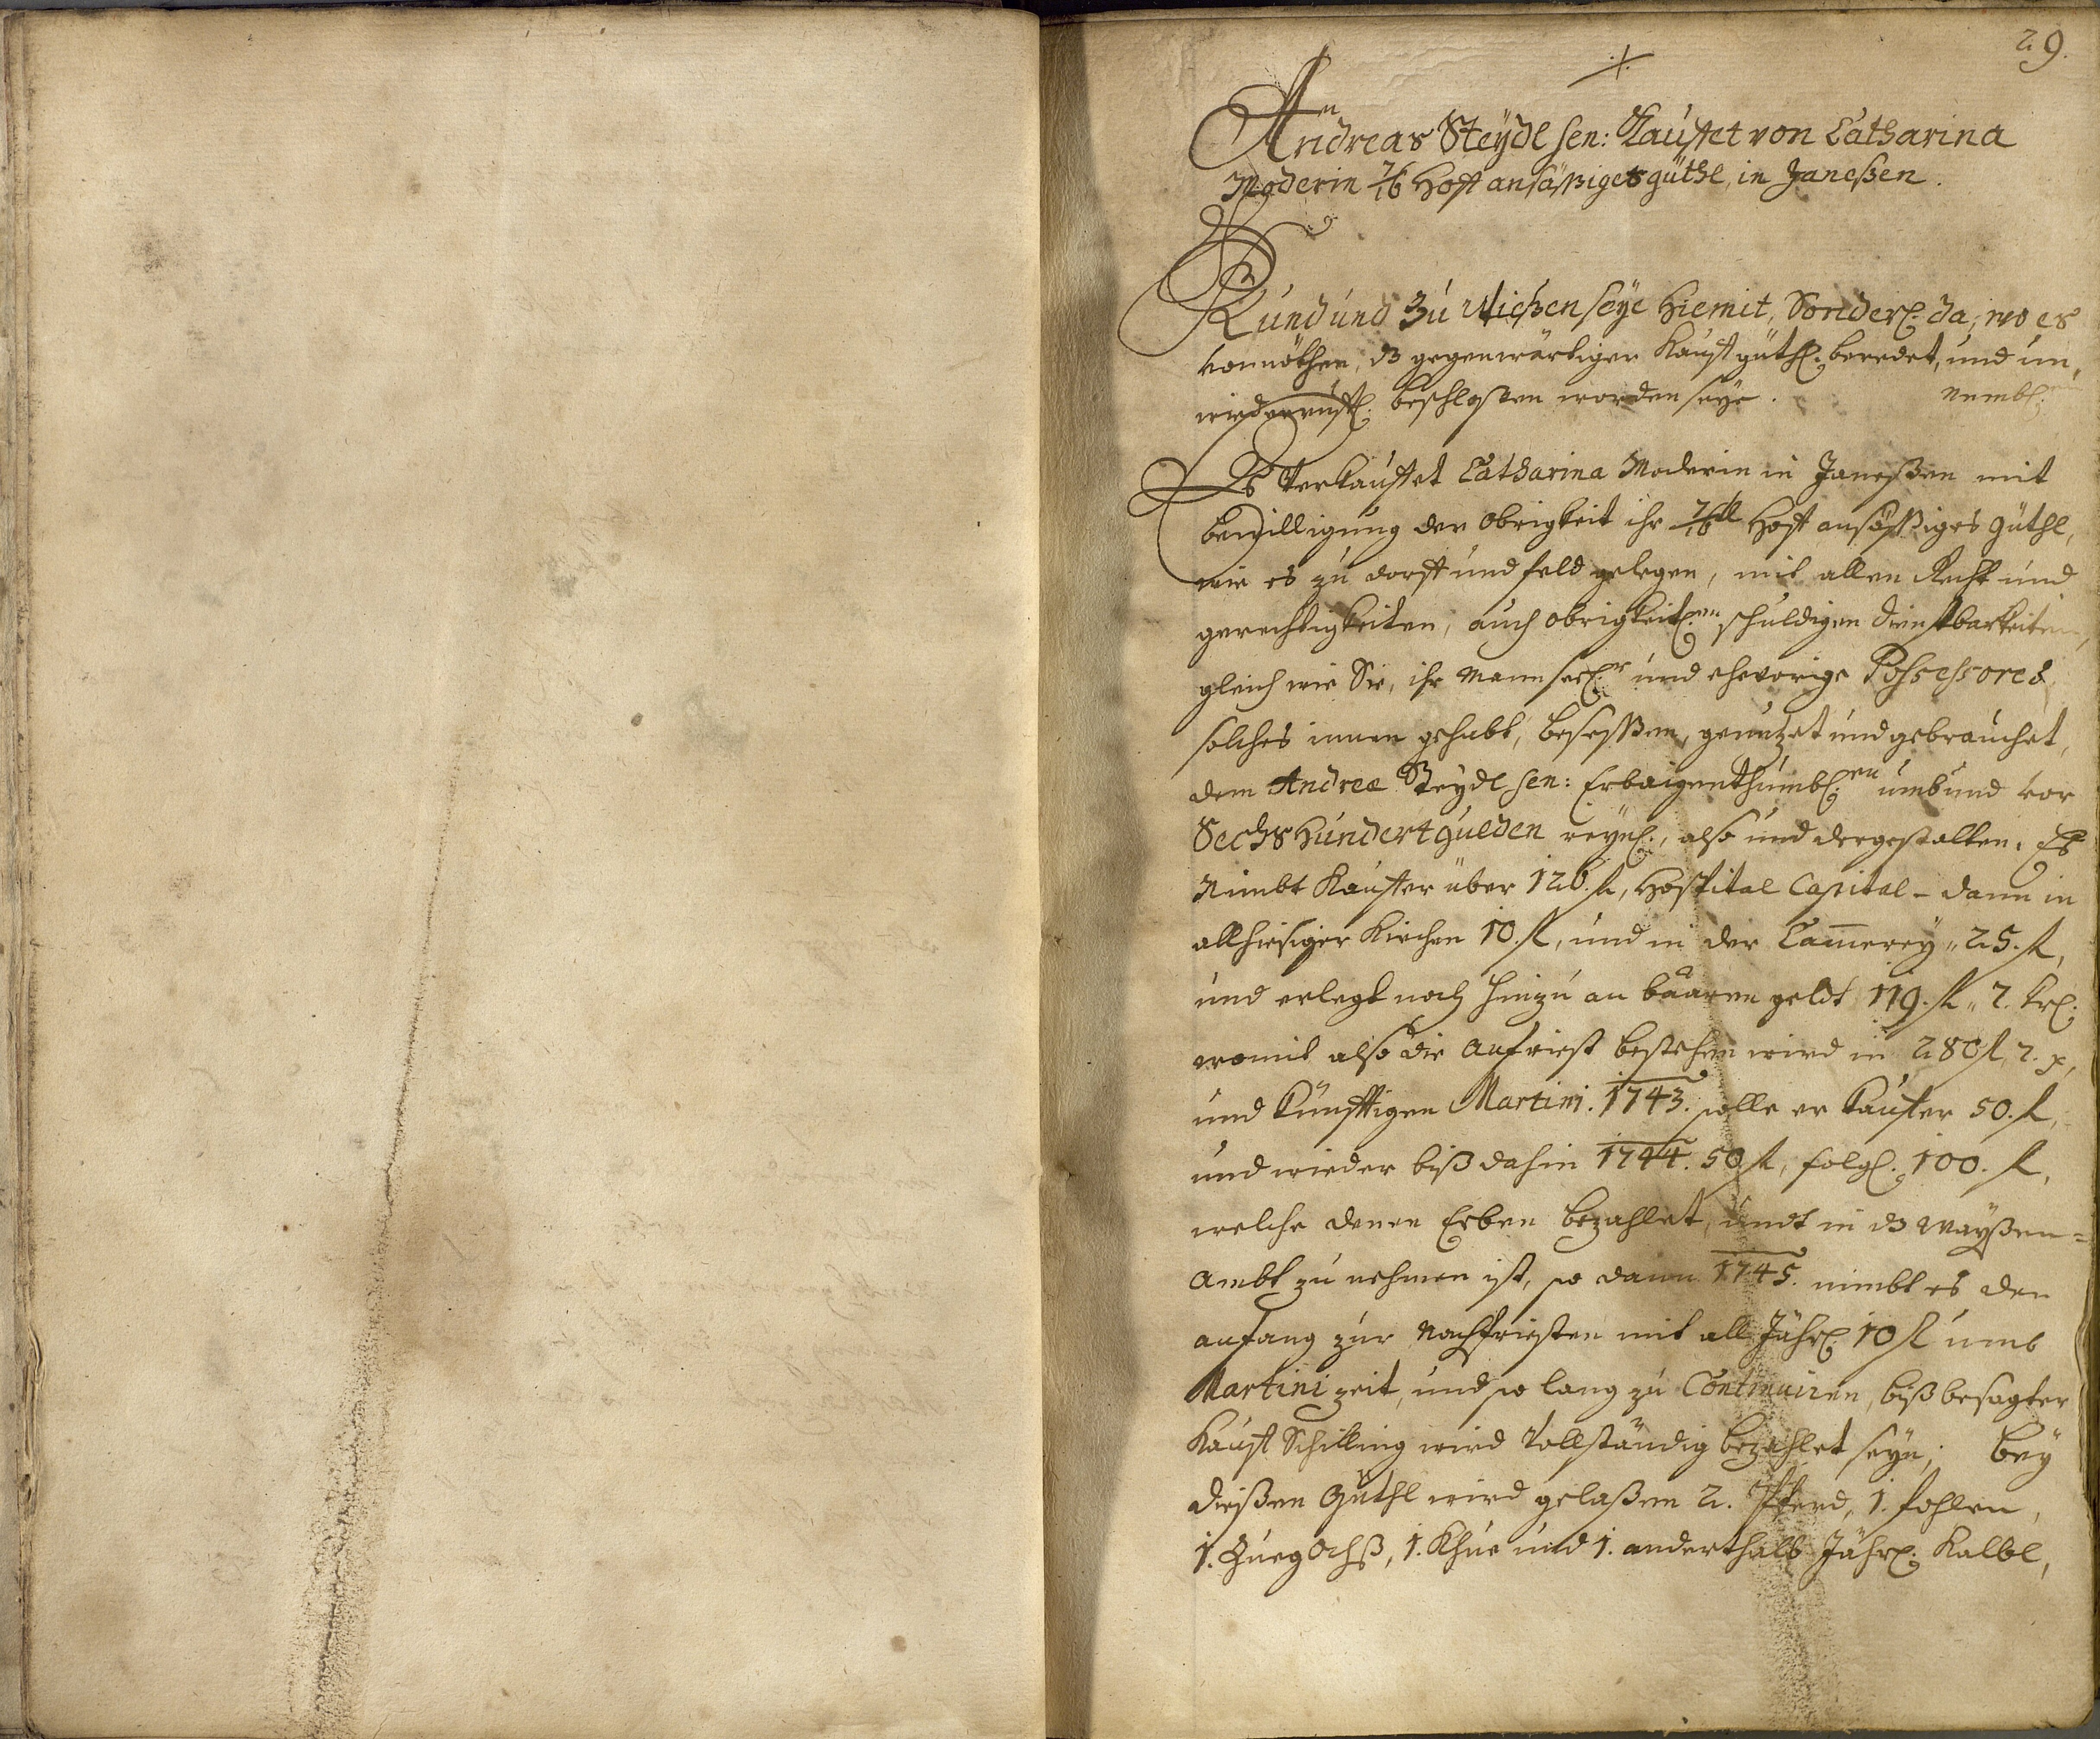 29.
Andreas Steÿdl sen: Kauffet von Catharina
Moderin 7/16 Hoff ansäßiges güthl, in Janeßen.
Kund und Zu Wißen seÿe Hiemit, Sonderl. da, wo es
vonnöthen, dz gegenwärtiger Kauff güthl. beredet, und un,
wiederruffl. beschloßen worden seÿe. Nembl:
Es Verkauffet Catharina Moderin in Janeßen mit
bewilligung der Obrigkeit ihr 7/16tl Hoff ansäßiges güthl,
wie es zu dorff und feld gelegen, mit allen Recht und
gerechtigkeiten, auch obrigkeitl.en schuldigen dienstbarkeiten,
gleich wie Sie, ihr Mann seel.r und ehevorige Possessores
solches innen gehabt, beseßen, genutzet und gebrauchet,
dem Andreæ Steÿdl sen: Erbaigenthumbl.en umb und vor
Sechs Hundert gulden reÿnl., also und dergestalten. Es
Nimbt Kauffer über 126. fl, Hospital Capital - dann in
allhiesiger Kirchen 10. fl, und in der Cam̅ereÿ „ 25. fl,
und erlegt noch hinzu an baaren geldt 119. fl „ 7. krl:
womit also die anfriest bestehen wird in 280 fl, 7. x,
und künfftigen Martini. 1743. solle er Kauffer 50. fl,
und wieder biß dahin 1744. 50 fl, folgl. 100. fl,
welche denen Erben bezahlet, undt in dz Waÿßen=
ambt zu nehmen ist, so dann 1745. nimbt es den
anfang zur Nachfriesten mit all Jährl. 10 fl umb
Martini zeit, und so lang zu Continuiren, biß besagter
Kauff Schilling wird Vollständig bezahlet seÿn; beÿ
dießen Güthl wird gelaßen 2. Pferd, 1. fohlen,
1. Zueg Ochß, 1. Khue und 1. anderthalb Jährl. Kalbl,